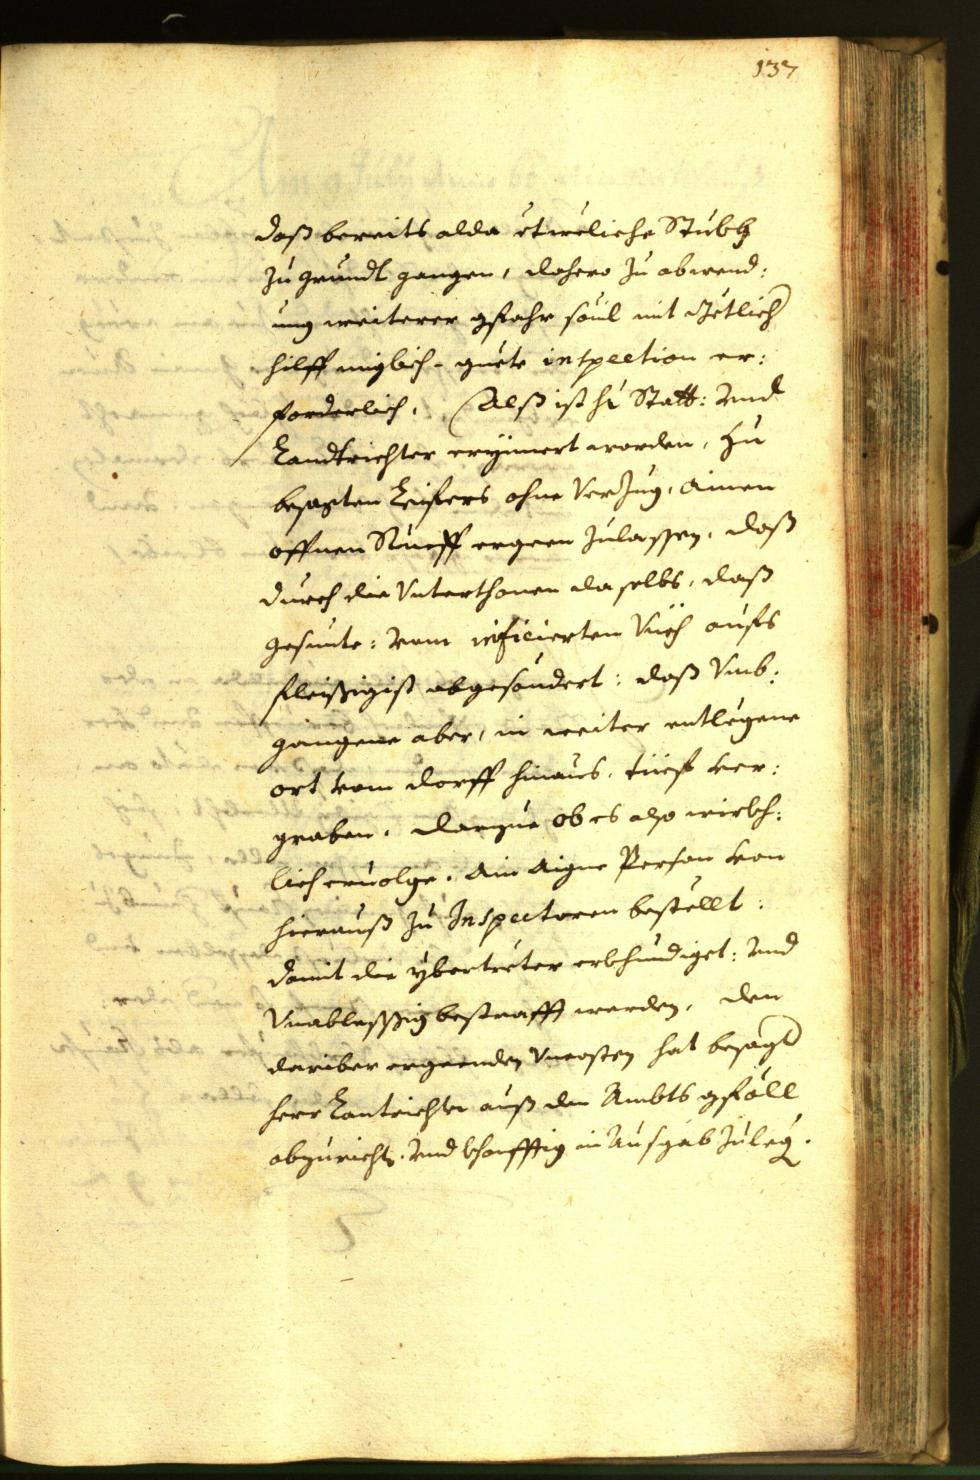 137
daß bereits alda etweliche Stückh
zu grundt gangen, dahero zu abwend:
ung weiterer gfahr souil mit Götlich
hilff miglich- guete inspection er:
forderlich. Alß ist h: Statt: vnd
Landtrichter erynnert worden, zu
besagten Leifers ohne Verzug, ainen
offnen Rueff ergeen zulassen, daß
durch die Vnterthonen daselbs, daß
gesunte: vom inficierten Vüch aufs
fleissigist abgesöndert: daß Vmb:
gangene aber, in weiter entlegene
ort vom dorff hinaus, tüeff ver:
graben, darzue ob es also wirkh:
lich ervolge. Ain Aigne Person von
hierauß zu Inspectoren bestellt:
damit die ybertreter erkhundiget: vnd
Vnablessig bestrafft werden, den
dariber ergeenden Vncosten hat besagt
herr Lantrichter auß den Ambts gföll
abzuricht. vnd khonfftig in Ausgab zuleg.